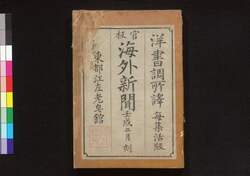 洋書調所譯 毎集活版
官板
海外新聞
壬戌二月 刻
東都江左老皂館